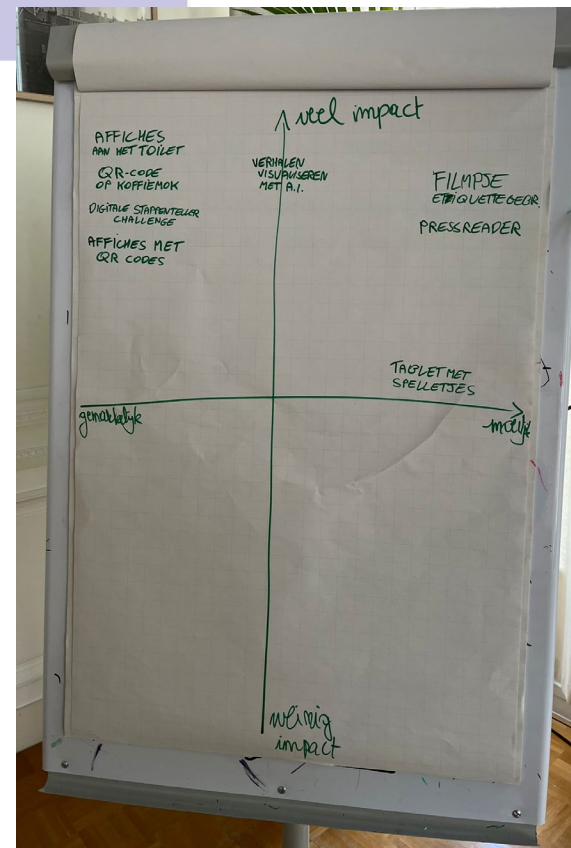 veel impact
AFFICHES
AAN HET TOILET
QR-CODE
OP KOFFIEMOK
DIGITALE STAPPENTELLER
CHALLENGE
AFFICHES MET
QR CODES
VERHALEN
VISUALISEREN
MET A.I.
FILMPJE
ETIQUETTE
PRESSREADER
TABLET MET
SPELLETJES
gemakkelijk
moeilijk
weinig
impact